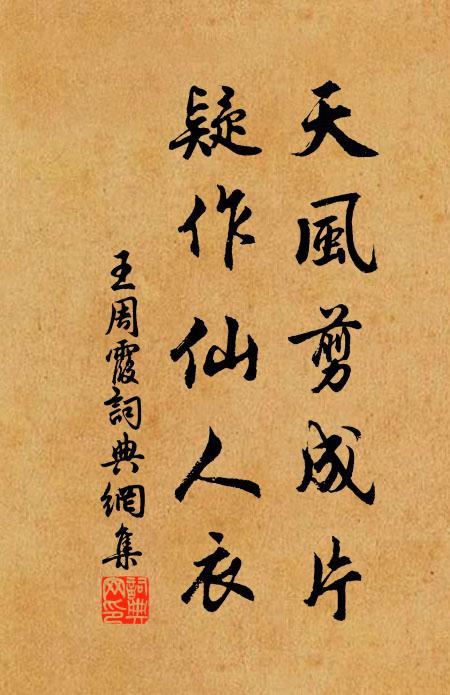 天風剪成片
疑作仙人衣
王周霞詞典網集
詞典網印